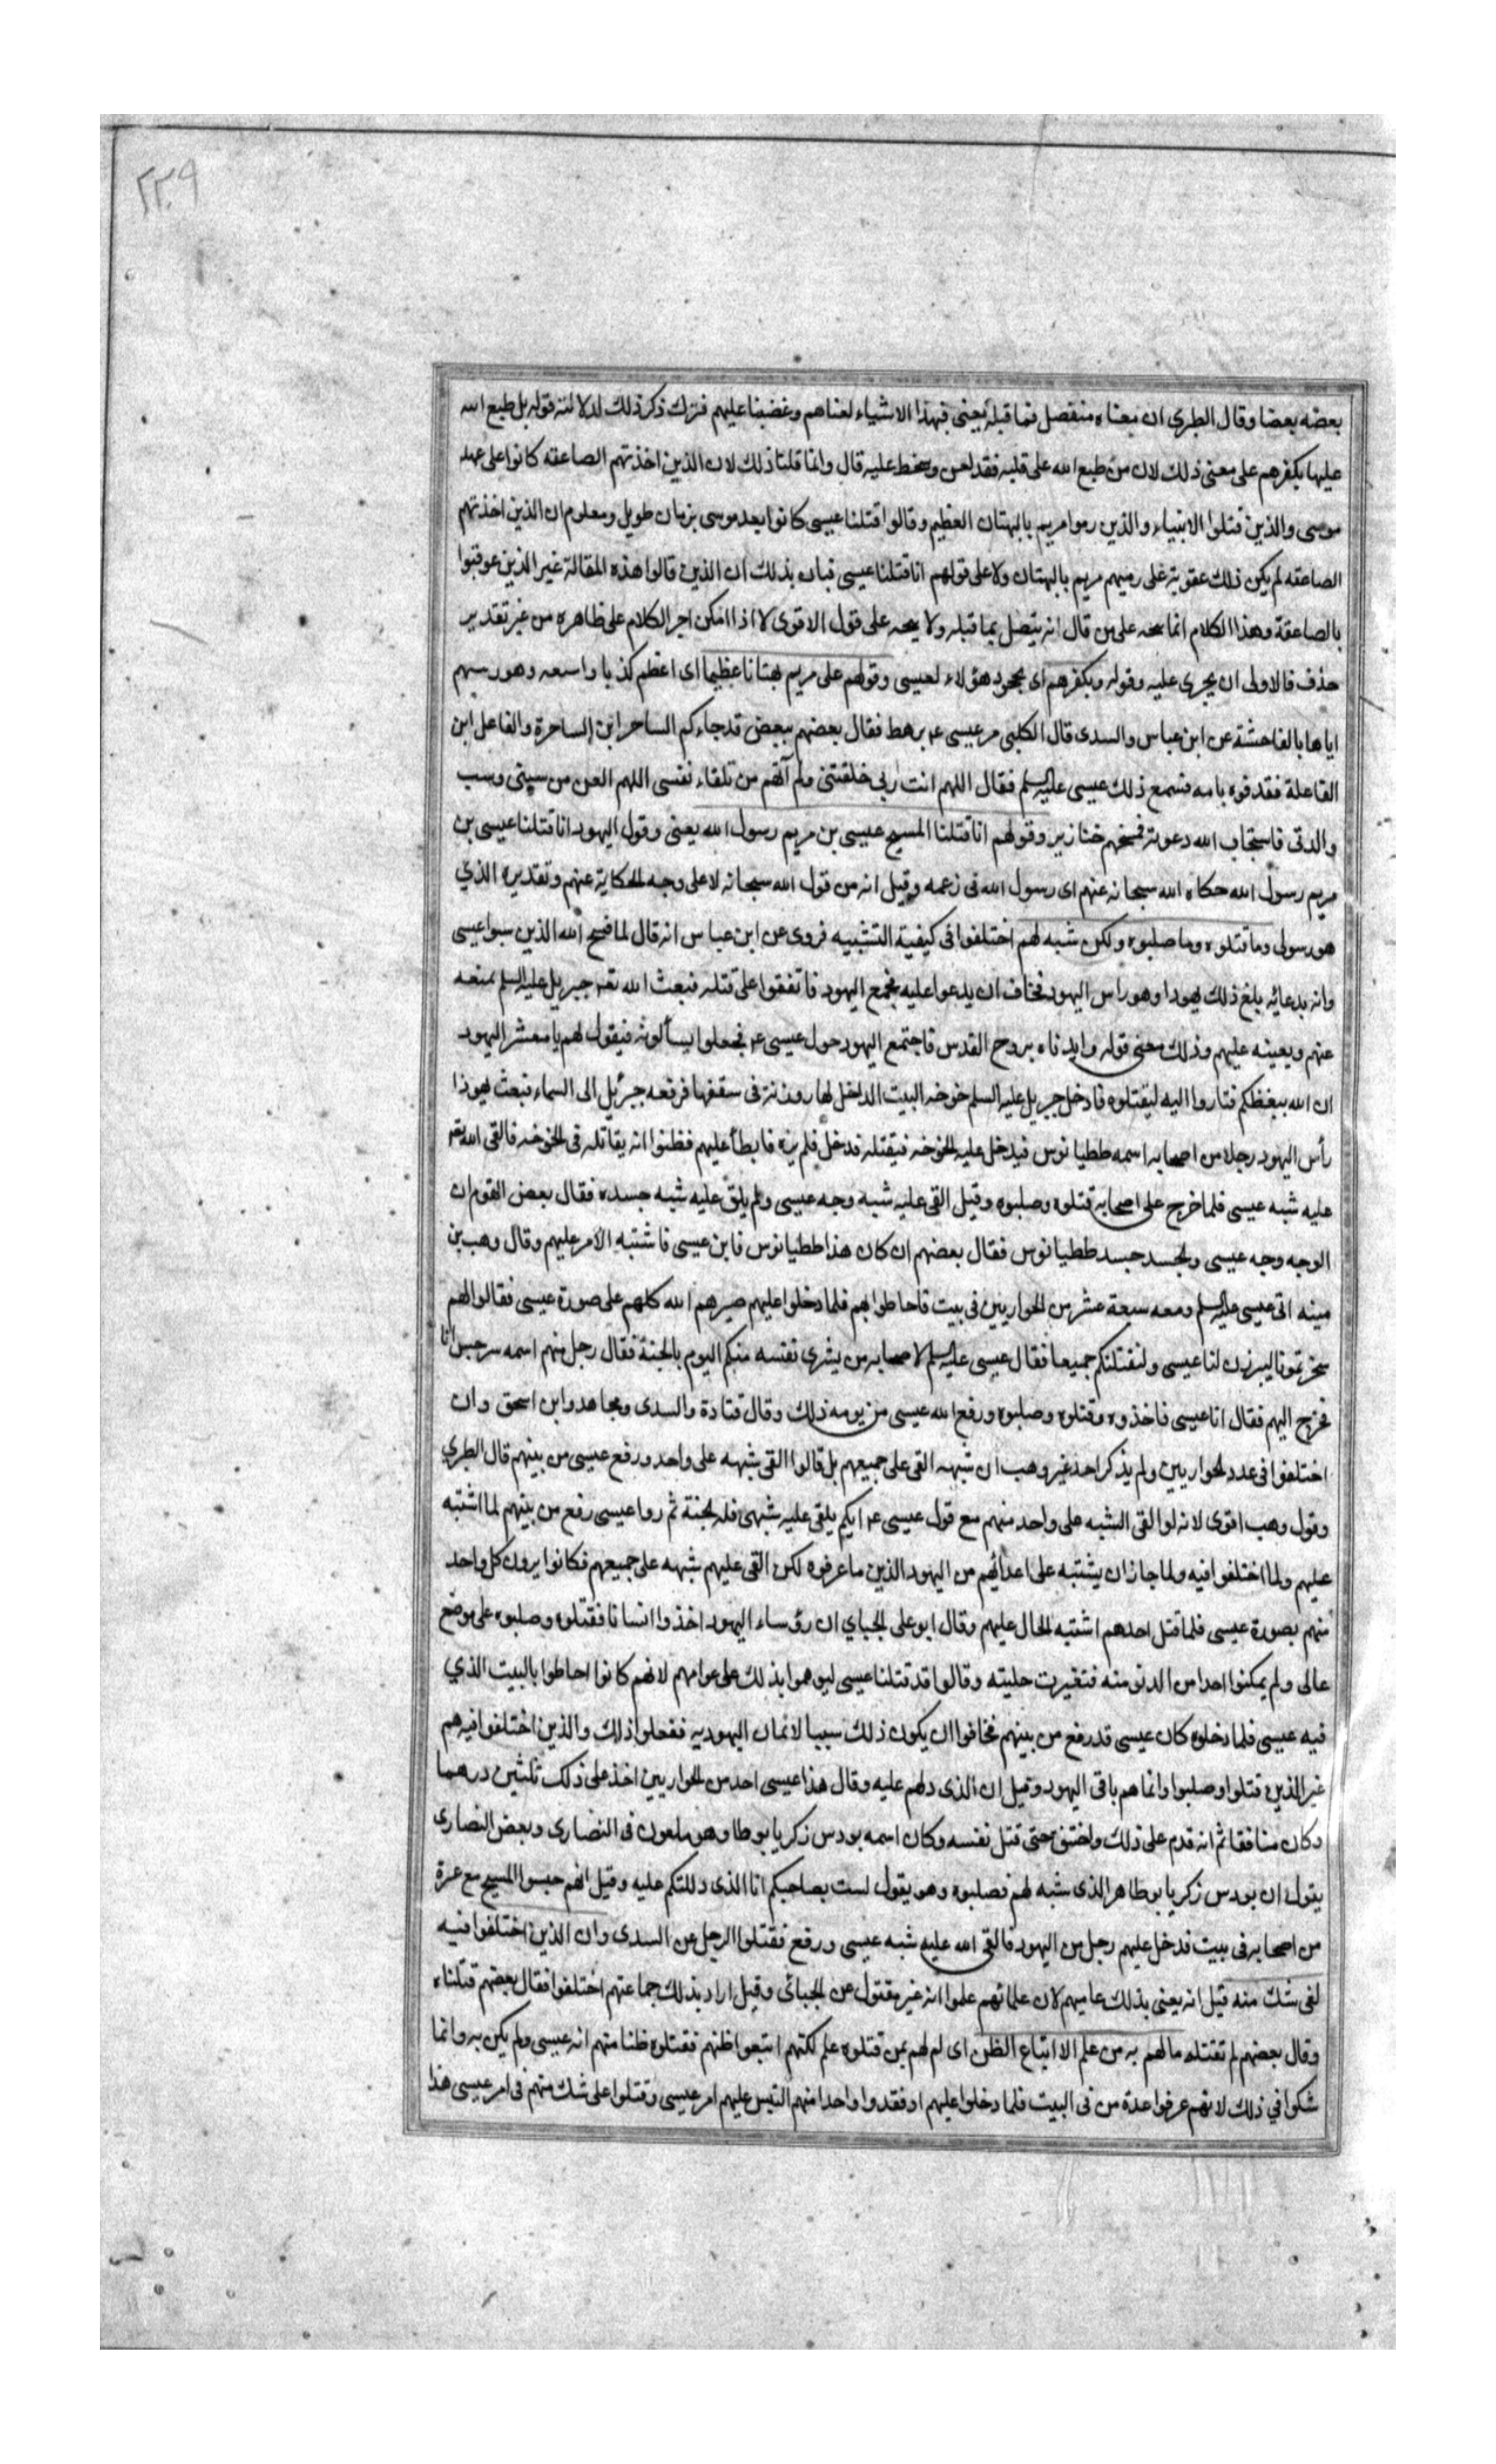 ٢٣٩
بعضه بعضا وقال الطبرى ان معناه منفصل مما قبله يعنى فبهذا الاشياء لعناهم وغضبنا عليهم فترك ذكر ذلك لدلالته قوله بل طبع الله
عليها بكفرهم على معنى ذلك لان من طبع الله على قلبه فقد لعن وسخط عليه قال وانما قلنا ذلك لان الذين اخذتهم الصاعقه كانوا على عهد
موسى والذين قتلوا الانبياء والذين رموا مريم بالبهتان العظيم وقالوا قتلنا عيسى كانوا بعد موسى بزمان طويل ومعلوم ان الذين اخذتهم
الصاعقه لم يكن ذلك عقوبة على رميهم مريم بالبهتان ولا على قولهم انا قتلنا عيسى فبان بذلك ان الذين قالوا هذه المقالة غير الذين عوقبوا
بالصاعقة وهذا الكلام انما يتجه على من قال انه يتصل بما قبله ولا يتجه على قول الاقوى لا اذا امكن اجر الكلام على ظاهره من غير تقدير
حذف فالاولى ان يجرى عليه وقوله وبكفرهم اى بجحود هؤلاء لعيسى وقولهم على مريم بهتانا عظيما اى اعظم كذبا واسعه وهو رميهم
اياها بالفاحشة عن ابن عباس والسدى قال الكلبى مر عيسى ع برهط فقال بعضهم ببعض قد جاءكم الساحر ابن الساحرة والفاعل ابن
الفاعلة فقذفوه بامه فسمع ذلك عيسى عليه السلم فقال اللهم انت ربى خلقتنى ولم آتهم من تلقاء نفسى اللهم العن من سبنى وسب
والدتى فاستجاب الله دعوته فمسخهم خنازير وقولهم انا قتلنا المسيح عيسى بن مريم رسول الله يعنى وقول اليهود انا قتلنا عيسى بن
مريم رسول الله حكاه الله سبحانه عنهم اى رسول الله فى زعمه وقيل انه من قول الله سبحانه لا على وجه الحكاية عنهم وتقديره الذي
هو رسولى وما قتلوه وما صلبوه ولكن شبه لهم اختلفوا فى كيفية التشبيه فروى عن ابن عباس انه قال لما مسخ الله الذين سبوا عيسى
وانه بدعائه بلغ ذلك يهودا وهو راس اليهود فخاف ان يدعوا عليه فجمع اليهود فاتفقوا على قتله فبعث الله تعه جبريل عليه السلم يمنعه
عنهم ويعينه عليهم وذلك معنى قوله وايدناه بروح القدس فاجتمع اليهود حول عيسى ع فجعلوا يسألونه فيقول لهم يا معشر اليهود
ان الله يبغضكم فثاروا اليه ليقتلوه فادخل جبريل عليه السلم خوخه البيت الداخل لها روزنة فى سقفها فرفعه جبرئيل الى السماء فبعث يهوذا
رأس اليهود رجلا من اصحابه اسمه ططيانوس فيدخل عليه الخوخه فيقتله فدخل فلم يره فابطأ عليهم فظنوا انه يقاتله فى الخوخه فالقى الله تعه
عليه شبه عيسى فلما خرج على اصحابه قتلوه وصلبوه وقيل القى عليه شبه وجه عيسى ولم يلق عليه شبه جسده فقال بعض القوم ان
الوجه وجه عيسى والجسد جسد ططيانوس فقال بعضهم ان كان هذا ططيانوس فاين عيسى فاشتبه الامر عليهم وقال وهب بن
مينه اتى عيسى عليه السلم ومعه سبعة عشر من الحواريين فى بيت فاحاطوا بهم فلما دخلوا عليهم صيرهم الله كلهم على صورة عيسى فقالوا لهم
سحرتمونا ليبرزن لنا عيسى ولنقتلنكم جميعا فقال عيسى عليه السلم لاصحابه من يشرى نفسه منكم اليوم بالجنة فقال رجل منهم اسمه سرجس انا
فخرج اليهم فقال انا عيسى فاخذوه وقتلوه وصلبوه ورفع الله عيسى من يومه ذلك وقال قتادة والسدى ومجاهد وابن اسحق وان
اختلفوا فى عدد الحواريين ولم يذكر احد غير وهب ان شبهه القى على جميعهم بل قالوا القى شبهه على واحد ورفع عيسى من بينهم قال الطبرى
وقول وهب اقوى لانه لو القى الشبه على واحد منهم مع قول عيسى ع ايكم يلقى عليه شبهى فله الجنة ثم روا عيسى رفع من بينهم لما اشتبه
عليهم ولما اختلفوا فيه ولما جاز ان يشتبه على اعدائهم من اليهود الذين ما عرفوه لكن القى عليهم شبهه على جميعهم فكانوا يرون كل واحد
منهم بصورة عيسى فلما قتل احدهم اشتبه الحال عليهم وقال ابو على الجباي ان رؤساء اليهود اخذوا انسانا فقتلوه وصلبوه على موضع
عالى ولم يمكنوا احدا من الدنو منه فتغيرت حليته وقالوا قد قتلنا عيسى ليوهموا بذلك على عوامهم لانهم كانوا احاطوا بالبيت الذي
فيه عيسى فلما دخلوه كان عيسى قد رفع من بينهم فخافوا ان يكون ذلك سببا لانمان اليهود به ففعلوا ذلك والذين اختلفوا فيه هم
غير الذين قتلوا وصلبوا وانما هم باقى اليهود وقيل ان الذى دلهم عليه وقال هذا عيسى احد من الحواريين اخذ على ذلك ثلثين درهما
وكان منافقا ثم انه قدم على ذلك واختنق حتى قتل نفسه وكان اسمه بودس زكريا بوطا وهو ملعون فى النصارى وبعض النصارى
يقول ان بودس زكريا بوطا هو الذى شبه لهم فصلبوه وهو يقول لست بصاحبكم انا الذى دللتكم عليه وقيل انهم حبسوا المسيح مع عشرة
من اصحابه فى بيت فدخل عليهم رجل من اليهود فالقى الله عليه شبه عيسى ورفع فقتلوا الرجل عن السدى وان الذين اختلفوا فيه
لفى شك منه قيل انه يعنى بذلك عاميهم لان علمائهم علموا انه غير مقتول عن الجبائى وقيل اراد بذلك جماعتهم اختلفوا فقال بعضهم قتلناه
وقال بعضهم لم نقتله ما لهم به من علم الا اتباع الظن اى لم لهم بمن قتلوه علم لكنهم اتبعوا ظنهم فقتلوه ظنا منهم انه عيسى ولم يكن به وانما
شكوا في ذلك لانهم عرفوا عدة من فى البيت فلما دخلوا عليهم اوفقدوا واحدا منهم التبس عليهم امر عيسى وقتلوا على شك منهم فى امر عيسى هذا